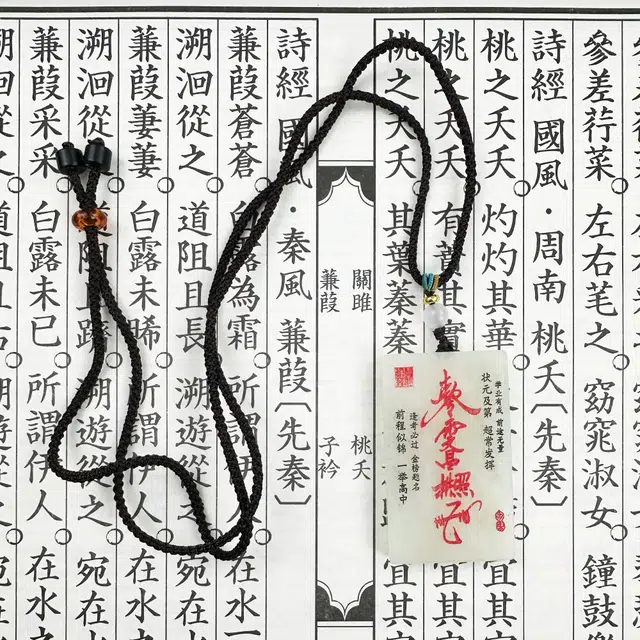 參差荇菜。左右芼之。窈窕淑女。鐘鼓
詩經 國風·周南 桃夭〔先秦〕
桃之夭夭。灼灼其華。宜其
桃之夭夭。有蕡其實。宜其
桃之夭夭。其葉蓁蓁 宜其
關雎 桃夭
蒹葭 子衿
詩經 國風·秦風 蒹葭〔先秦〕
蒹葭蒼蒼。白露為霜。所謂伊人。在水一
溯洄從之。道阻且長。溯遊從之。宛在水
蒹葭萋萋。白露未晞。所謂伊人。在水之
溯洄從之。道阻且躋。溯遊從之。宛在水
蒹葭采采。白露未已。所謂伊人。在水
学业有成 前途无量
状元及第 超常发挥
逢考必过 金榜题名
前程似锦 一举高中